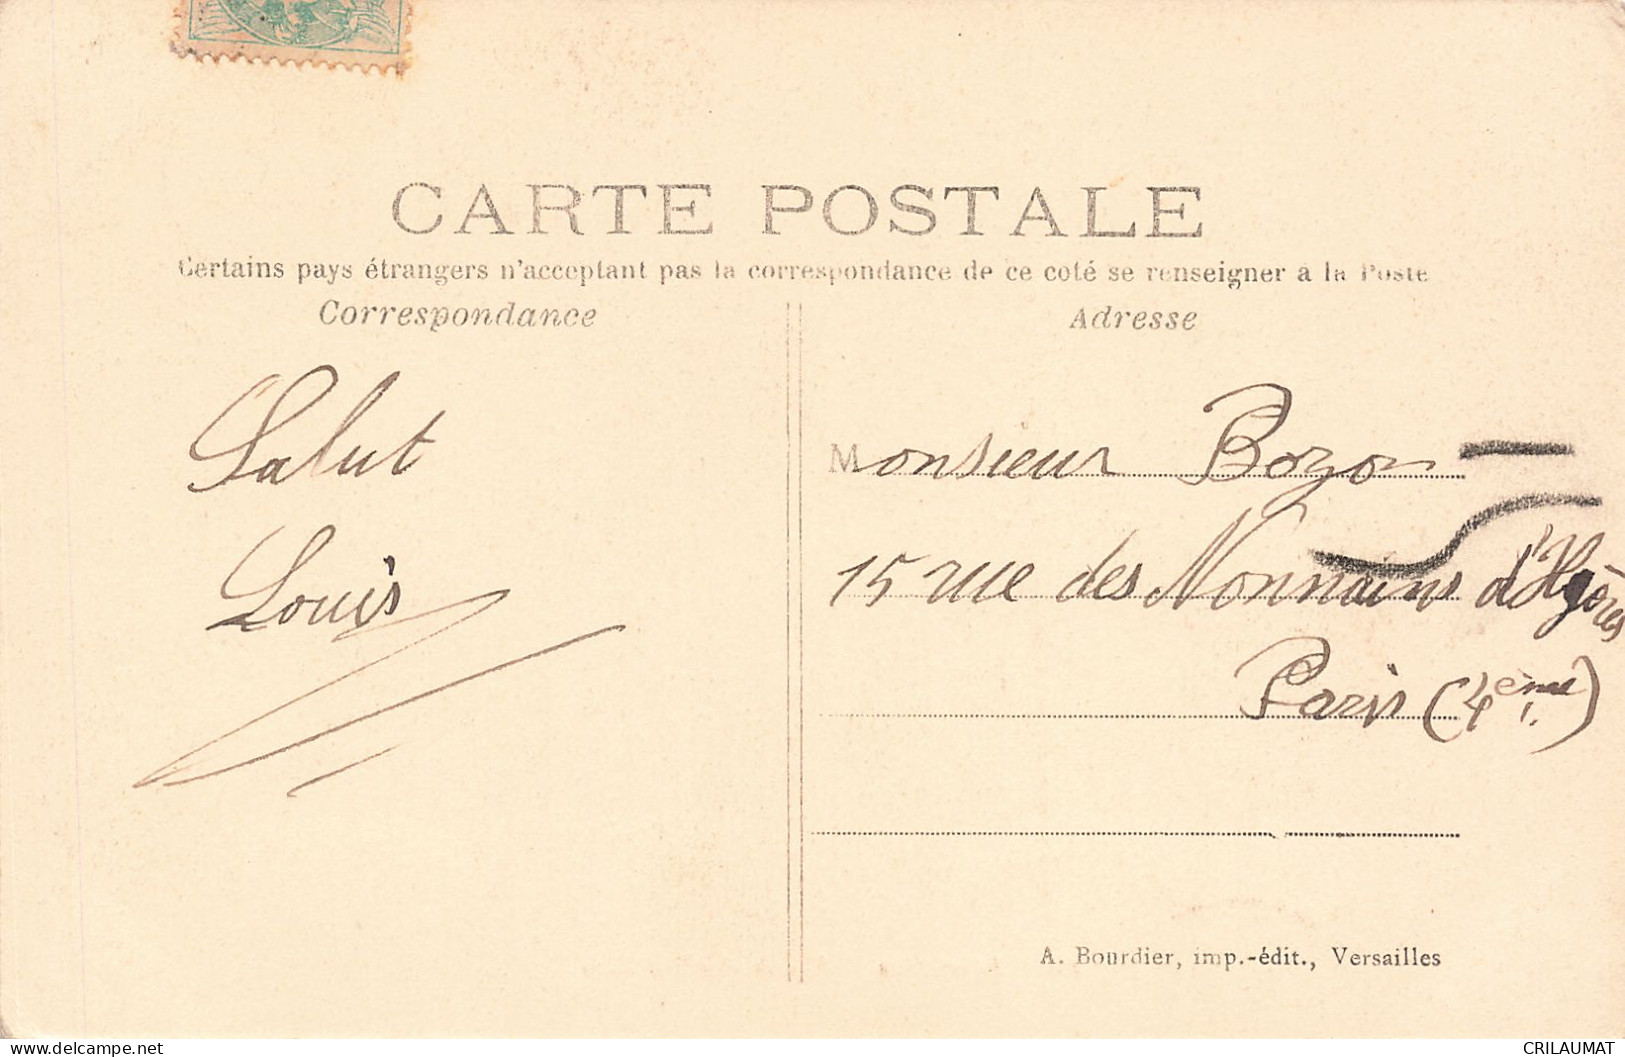 CARTE POSTALE
Certains pays étrangers n'acceptant pas la correspondance de ce coté se renseigner à la Poste
Correspondance
Adresse
Salut
Louis
Monsieur Bozon
15 rue des Nonnains d'Hyères
Paris (4ème)
A. Bourdier, imp.-édit., Versailles
www.delcampe.net
CRILAUMAT